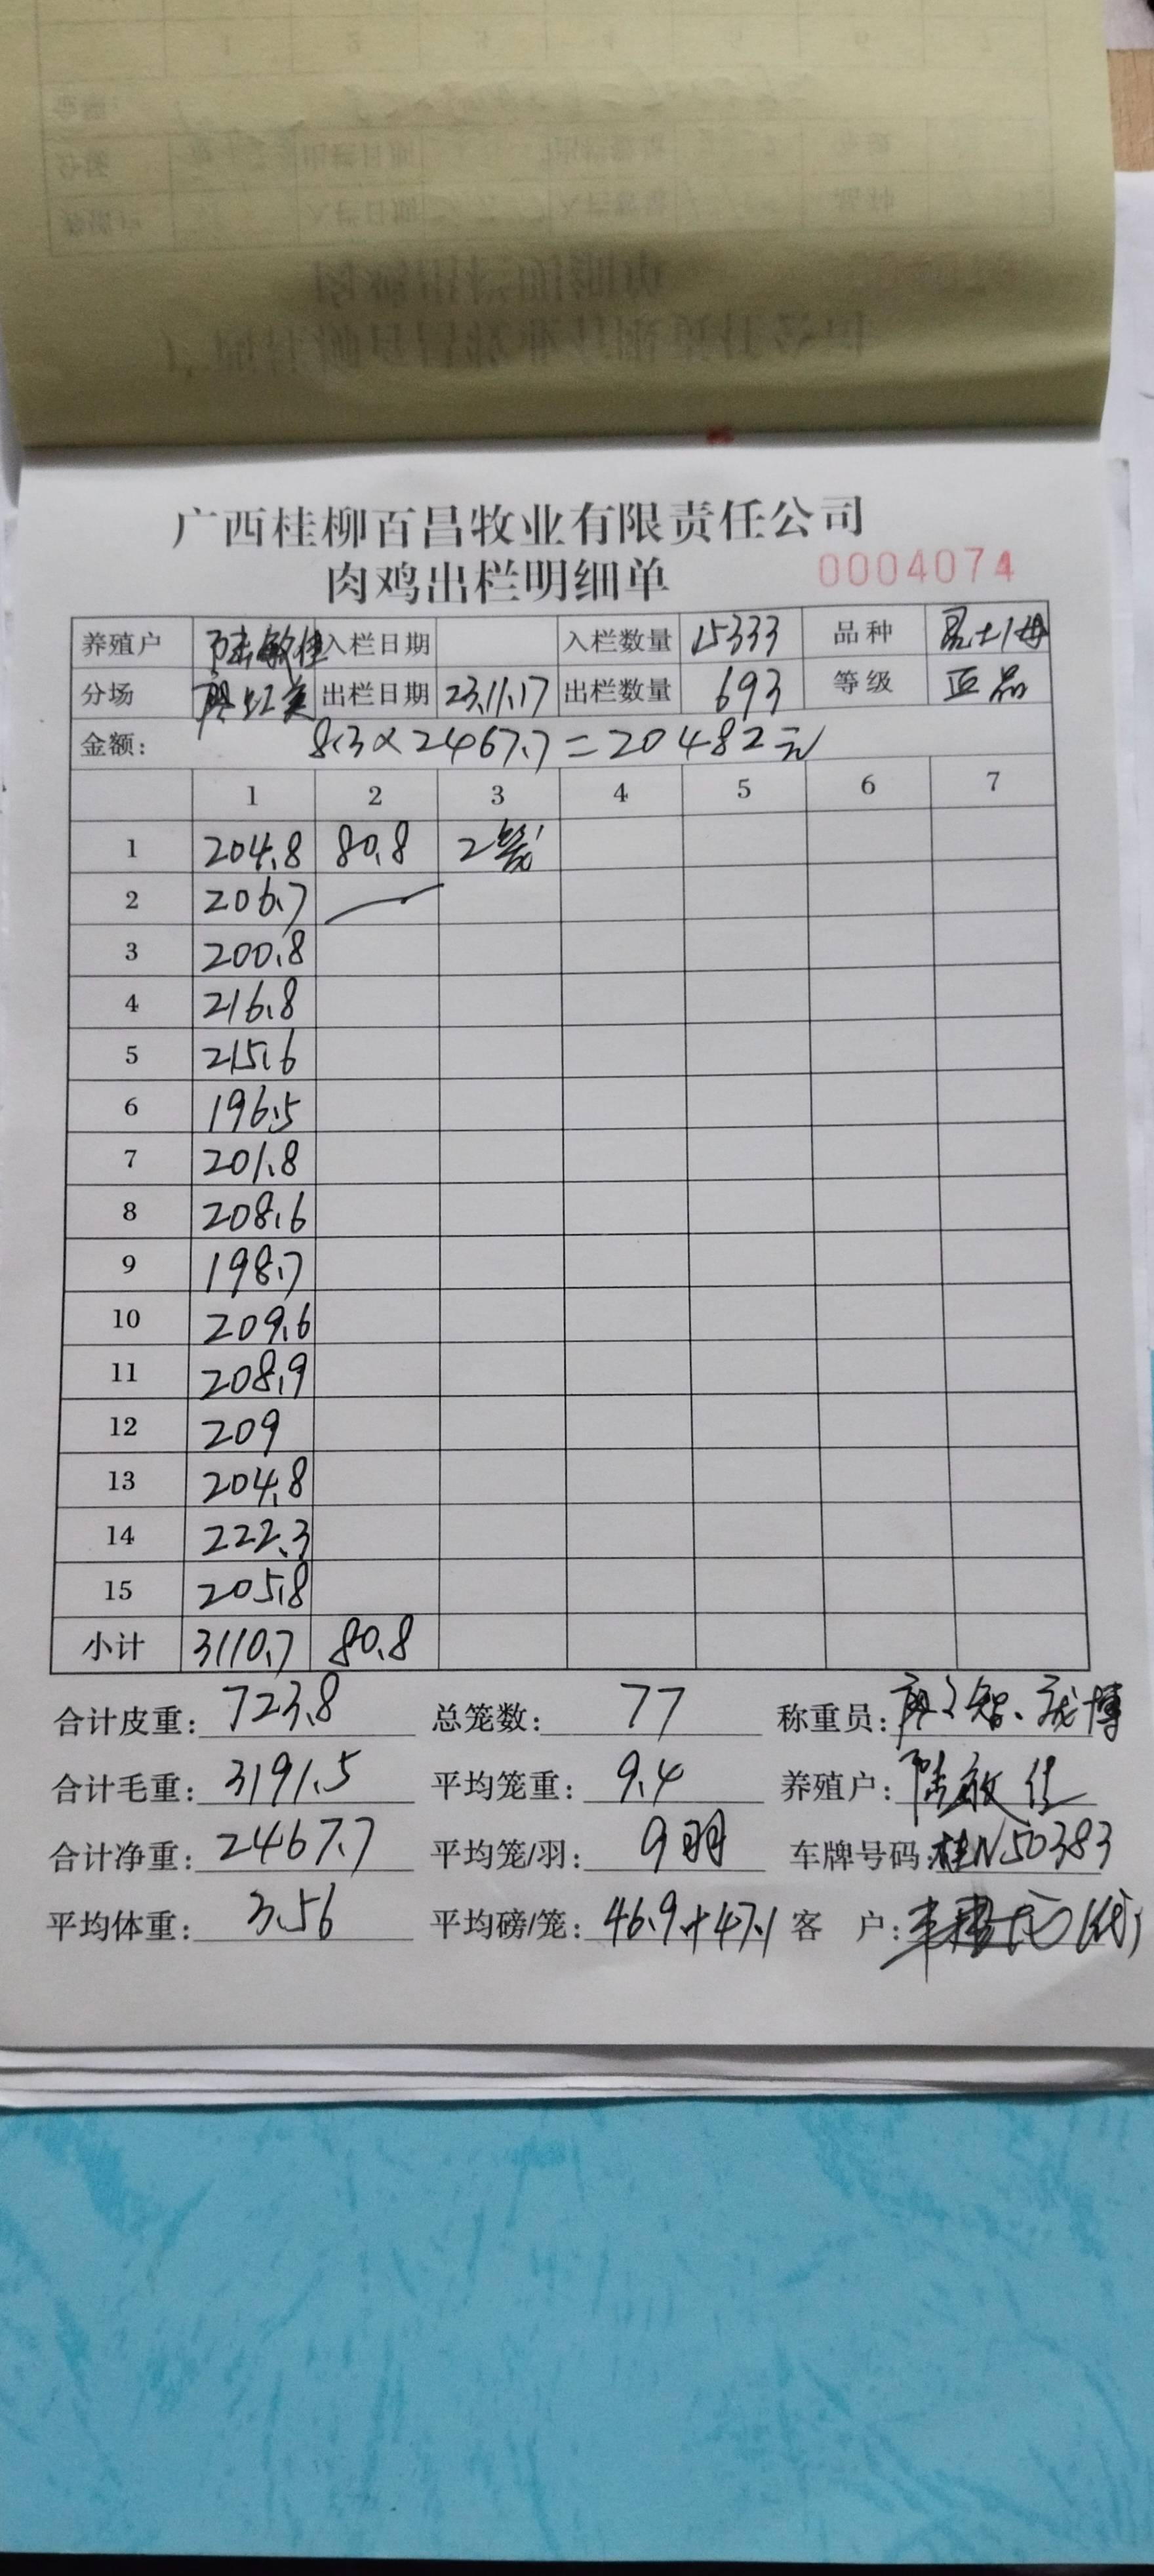 广西桂柳百昌牧业有限责任公司
肉鸡出栏明细单 0004074
养殖户 陆敏佳 入栏日期 入栏数量 15333 品种
分场 出栏日期 23.11.17 出栏数量 693 等级 正品
金额: 8.3×2467.7=20482元
1 2 3 4 5 6 7
1 204.8 80.8 2笼
2 206.7
3 200.8
4 216.8
5 215.6
6 196.5
7 201.8
8 208.6
9 198.7
10 209.6
11 208.9
12 209
13 204.8
14 222.3
15 205.8
小计 3110.7 80.8
合计皮重: 723.8 总笼数: 77 称重员:
合计毛重: 3191.5 平均笼重: 9.4 养殖户: 陆敏佳
合计净重: 2467.7 平均笼/羽: 9羽 车牌号码: 桂N50383
平均体重: 3.56 平均磅/笼: 46.9+47.1 客 户: